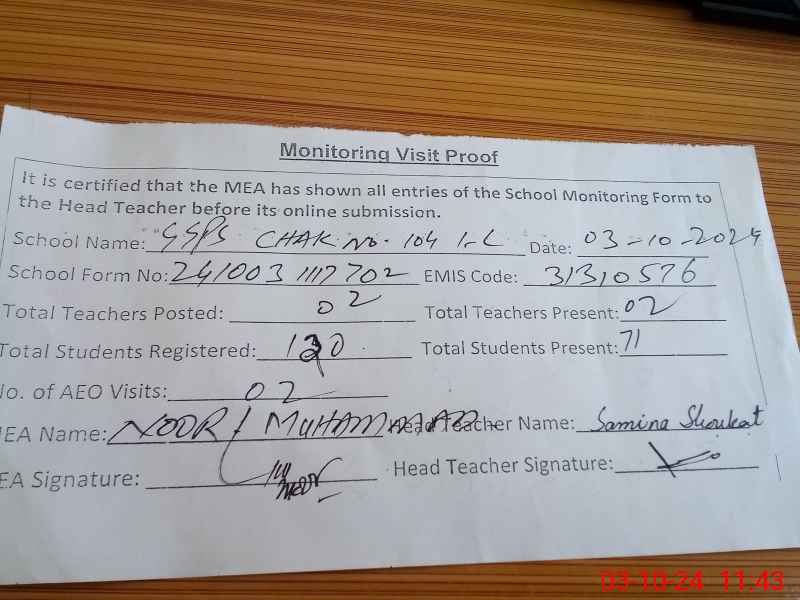 Monitoring Visit Proof
It is certified that the MEA has shown all entries of the School Monitoring Form to
the Head Teacher before its online submission.
School Name: GSPS CHAK NO. 104 1-L Date: 03-10-2024
School Form No: 241003 1117702 EMIS Code: 31310576
Total Teachers Posted: 02 Total Teachers Present: 02
Total Students Registered: 120 Total Students Present: 71
No. of AEO Visits: 02
MEA Name: NOOR MUHAMMAD Head Teacher Name: Samina Shoukat
EA Signature: Head Teacher Signature:
03-10-24 11:43